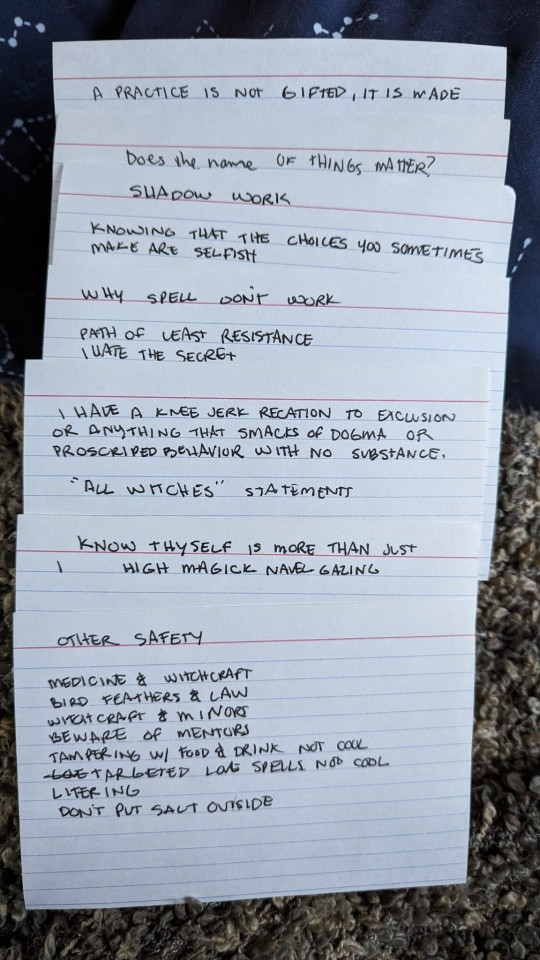 A PRACTICE IS NOT GIFTED, IT IS MADE
Does the name OF THINGS MATTER?
SHADOW WORK
KNOWING THAT THE CHOICES YOU SOMETIMES
MAKE ARE SELFISH
WHY SPELL DON'T WORK
PATH OF LEAST RESISTANCE
I HATE THE SECRET
I HAVE A KNEE JERK RECATION TO EXCLUSION
OR ANYTHING THAT SMACKS OF DOGMA OR
PROSCRIPED BEHAVIOR WITH NO SUBSTANCE.
"ALL WITCHES" STATEMENTS
KNOW THYSELF IS MORE THAN JUST
HIGH MAGICK NAVEL GAZING
OTHER SAFETY
MEDICINE & WITCHCRAFT
BIRD FEATHERS & LAW
WITCHCRAFT & MINORS
BEWARE OF MENTORS
TAMPERING W/ FOOD & DRINK NOT COOL
TARGETED LOVE SPELLS NOT COOL
LITERING
DON'T PUT SALT OUTSIDE